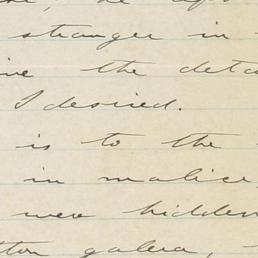 stranger in
the deta
I desired.
is to the
in malice,
were hidden
galea,